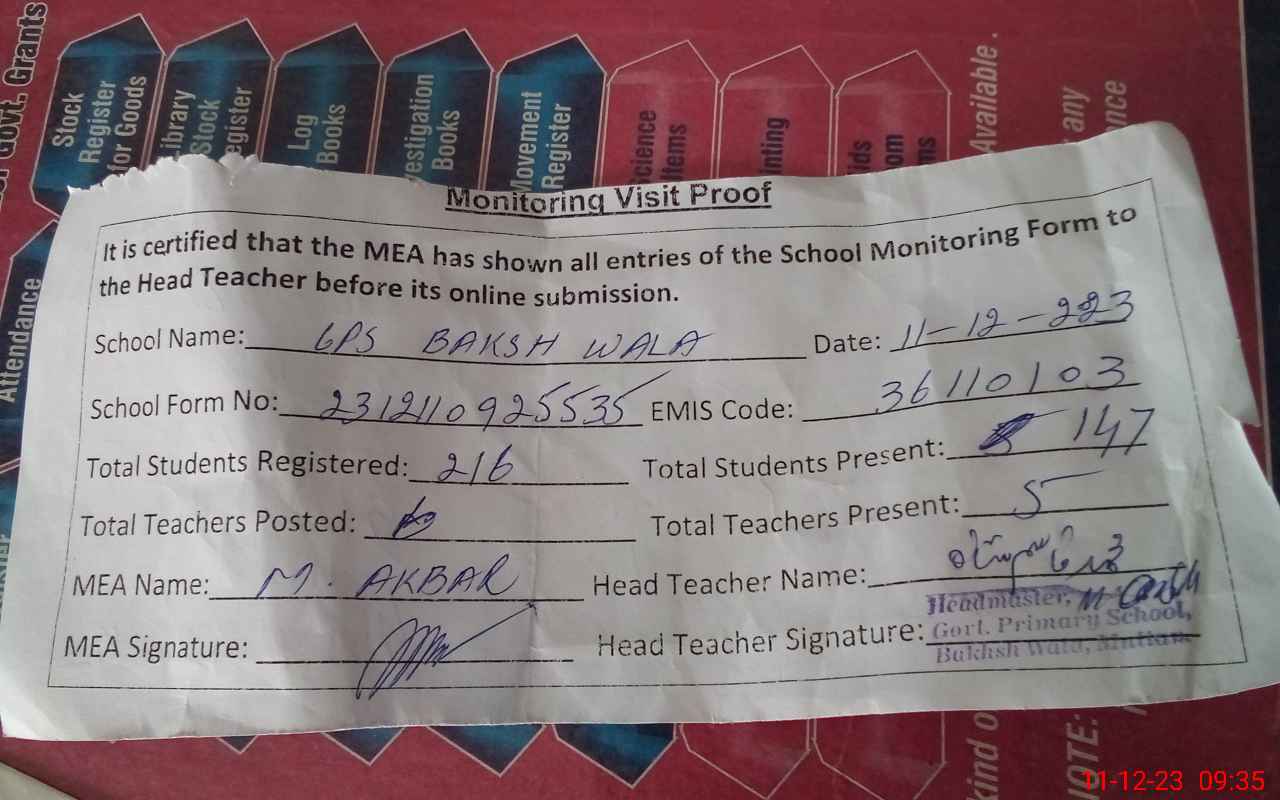 Govt. Grants
Stock
Register
for Goods
Library
Stock
Register
Log
Books
Investigation
Books
Movement
Register
Science
Items
Available.
any
Attendance
Monitoring Visit Proof
It is certified that the MEA has shown all entries of the School Monitoring Form to
the Head Teacher before its online submission.
School Name: GPS BAKSH WALA Date: 11-12-223
School Form No: 2312110925535 EMIS Code: 36110103
Total Students Registered: 216 Total Students Present: 147
Total Teachers Posted: Total Teachers Present: 5
MEA Name: M. AKBAR Head Teacher Name:
MEA Signature: Head Teacher Signature:
Headmaster,
Govt. Primary School,
Bukhsh Wala, Multan.
kind o
NOTE:
11-12-23 09:35